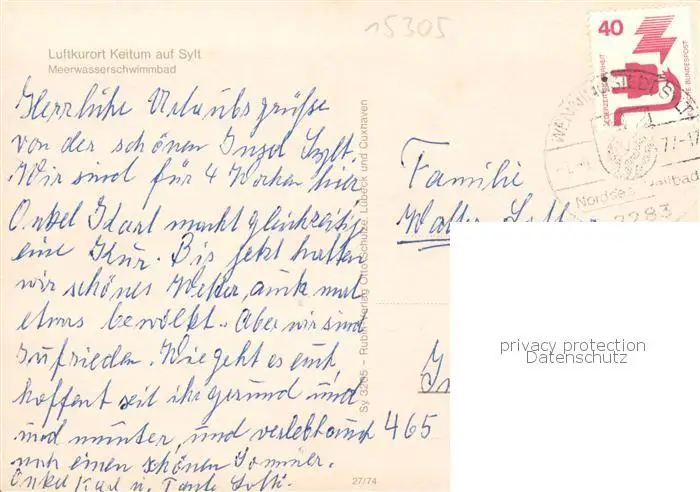 15305
Luftkurort Keitum auf Sylt
Meerwasserschwimmbad
Herrliche Urlaubsgrüße
von der schönen Insel Sylt.
Wir sind für 4 Wochen hier
Onkel Karl macht gleichzeitig
eine Kur. Bis jetzt hatten
wir schönes Wetter, auch mal
etwas bewölkt. Aber wir sind
zufrieden. Wie geht es euch,
hoffent seit ihr gesund und
und munter, und verlebt auch
noch einen schönen Sommer.
Onkel Karl u. Tante
27/74
Sy 3205 – Rubin-Verlag Otto Schulze, Lübeck und Cuxhaven
40
JEDERZEIT SICHERHEIT
DEUTSCHE BUNDESPOST
WENNINGSTEDT/SYLT
77-17
Nordsee
2283
Familie
Walter
465
privacy protection
Datenschutz